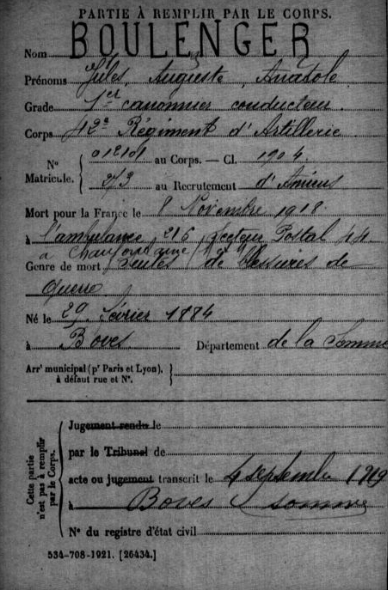 PARTIE À REMPLIR PAR LE CORPS.
Nom BOULENGER
Prénoms Jules, Auguste, Anatole
Grade 1er canonnier conducteur
Corps 42e Régiment d'Artillerie
N° Matricule. au Corps. — Cl. 1904.
au Recrutement d'Amiens
Mort pour la France le 8 Novembre 1918.
à l'ambulance 216 Secteur Postal 44
Genre de mort Suites de Blessures de
guerre
Né le 29 février 1884
à Boves Département de la Somme
Arr' municipal (p' Paris et Lyon), à défaut rue et N°.
Cette partie n'est pas à remplir par le Corps.
Jugement rendu le
par le Tribunal de
acte ou jugement transcrit le 4 septembre 1919
à Boves Somme
N° du registre d'état civil
534-708-1921. [26434.]